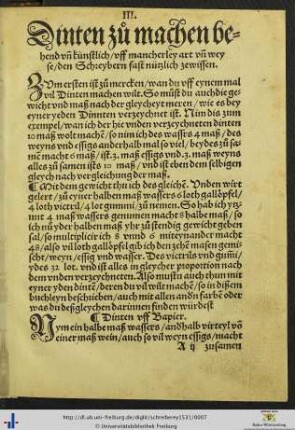 III.
Dinten zů machen be-
hend vñ künstlich/ vff mancherley art vñ wey
se/ den Schreybern fast nützlich zewissen.
ZVm ersten ist zů mercken/ wan du vff eynem mal
vil Dinten machen wilt. So můst du auch die ge-
wicht vnd maß nach der gleycheyt meren/ wie es bey
eyner yeden Dinnten verzeychnet ist. Nim dis zum
exempel/ wan ich der hie vnden verzeychneten dinten
10 maß wolt machē/ so nim ich des wassers 4 maß/ des
weyns vnd essigs anderhalb mal so vil/ beydes zu sa-
mē macht 6 maß/ ist .3. maß essigs vnd .3. maß weyns
alles zu samen ists 10 maß/ vnd ist eben dem selbigen
gleych nach vergleichung der maß.
¶ Mit dem gewicht thů ich des gleichē. Vnden wirt
gelert/ zů eyner halben maß wassers 6 loth gallöpfel/
4 loth victril/ 4 lot gummi/ zů nemen. So hab ich ytz
und 4 maß wassers genumen macht 8 halbe maß/ so
ich nů yder halben maß yhr zůstendig gewicht geben
sal/ so multiplicir ich 8 vnnd 6 miteynander macht
48/ also vil loth gallöpfel gib ich den zehē maßen gemi
scht/ weyn/ essig vnd wasser. Des victrils vnd gūmi/
ydes 32 lot. vnd ist alles in glycher proportion nach
dem vnden verzeychnetē. Also můstu auch thun mit
eyner yden dintē/ deren du vil wilt machē/ so in dißem
buchleyn beschieben/ auch mit allen andn farbē oder
was du deßgleychen darinnen finden würdest
¶ Dinten vff Bapier.
NYm ein halbe maß wassers/ andhalb virteyl võ
einer maß wein/ auch so vil weyn essigs/ macht
A ij zusamen
http://dl.ub.uni-freiburg.de/diglit/schreiberey1531/0007
© Universitätsbibliothek Freiburg